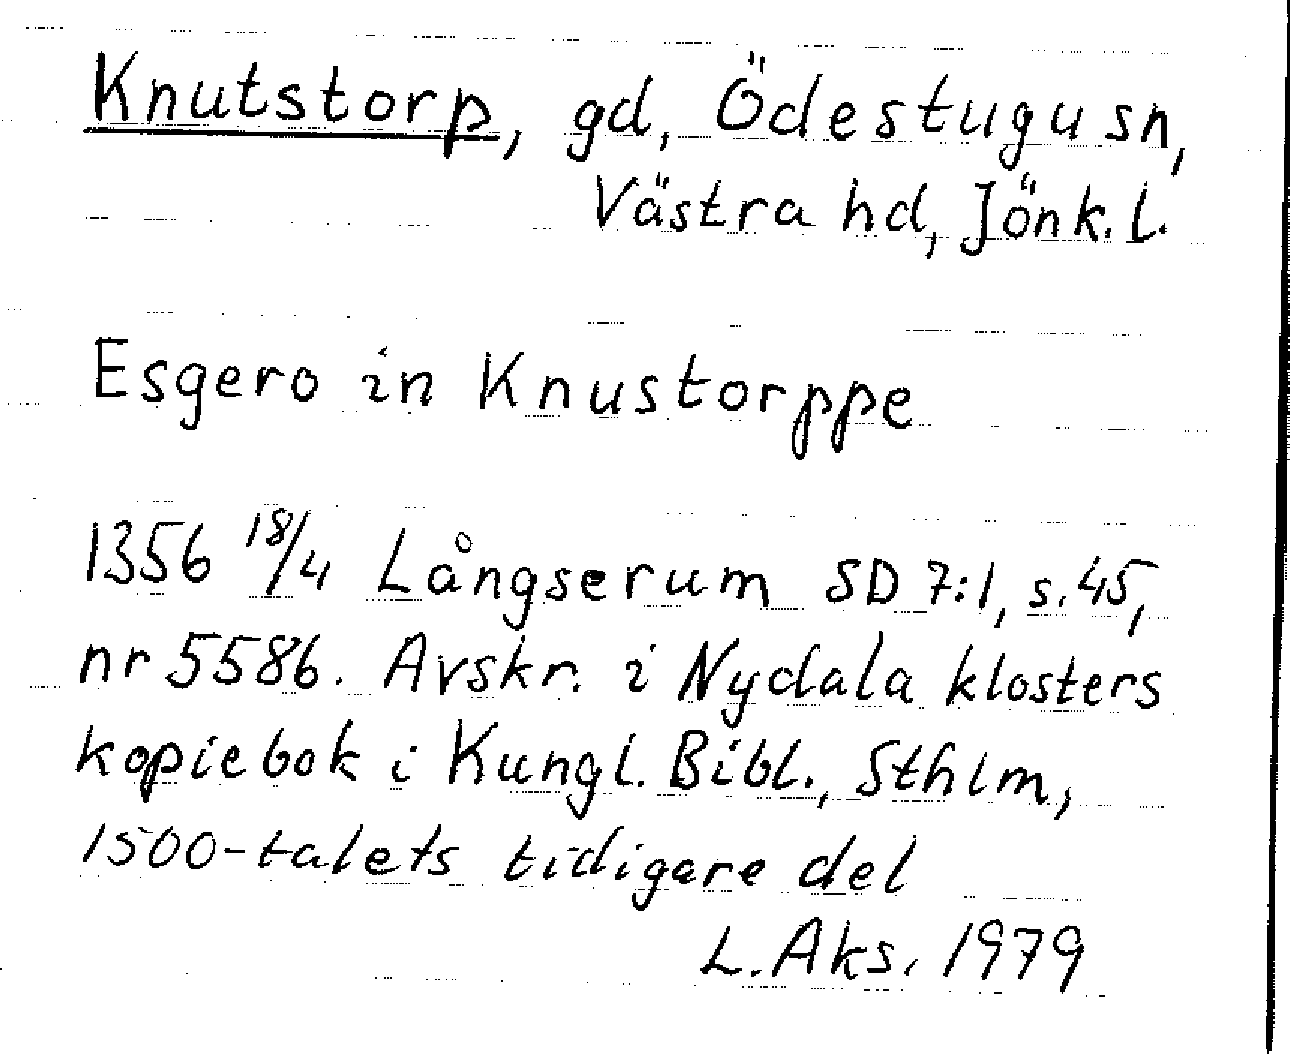 Knutstorp, gd, Ödestugu sn,
Västra hd, Jönk. l.
Esgero in Knustorppe
1356 18/4 Långserum SD 7:1, s. 45,
nr 5586. Avskr. i Nydala klosters
kopiebok i Kungl. Bibl., Sthlm,
1500-talets tidigare del
L. Aks. 1979